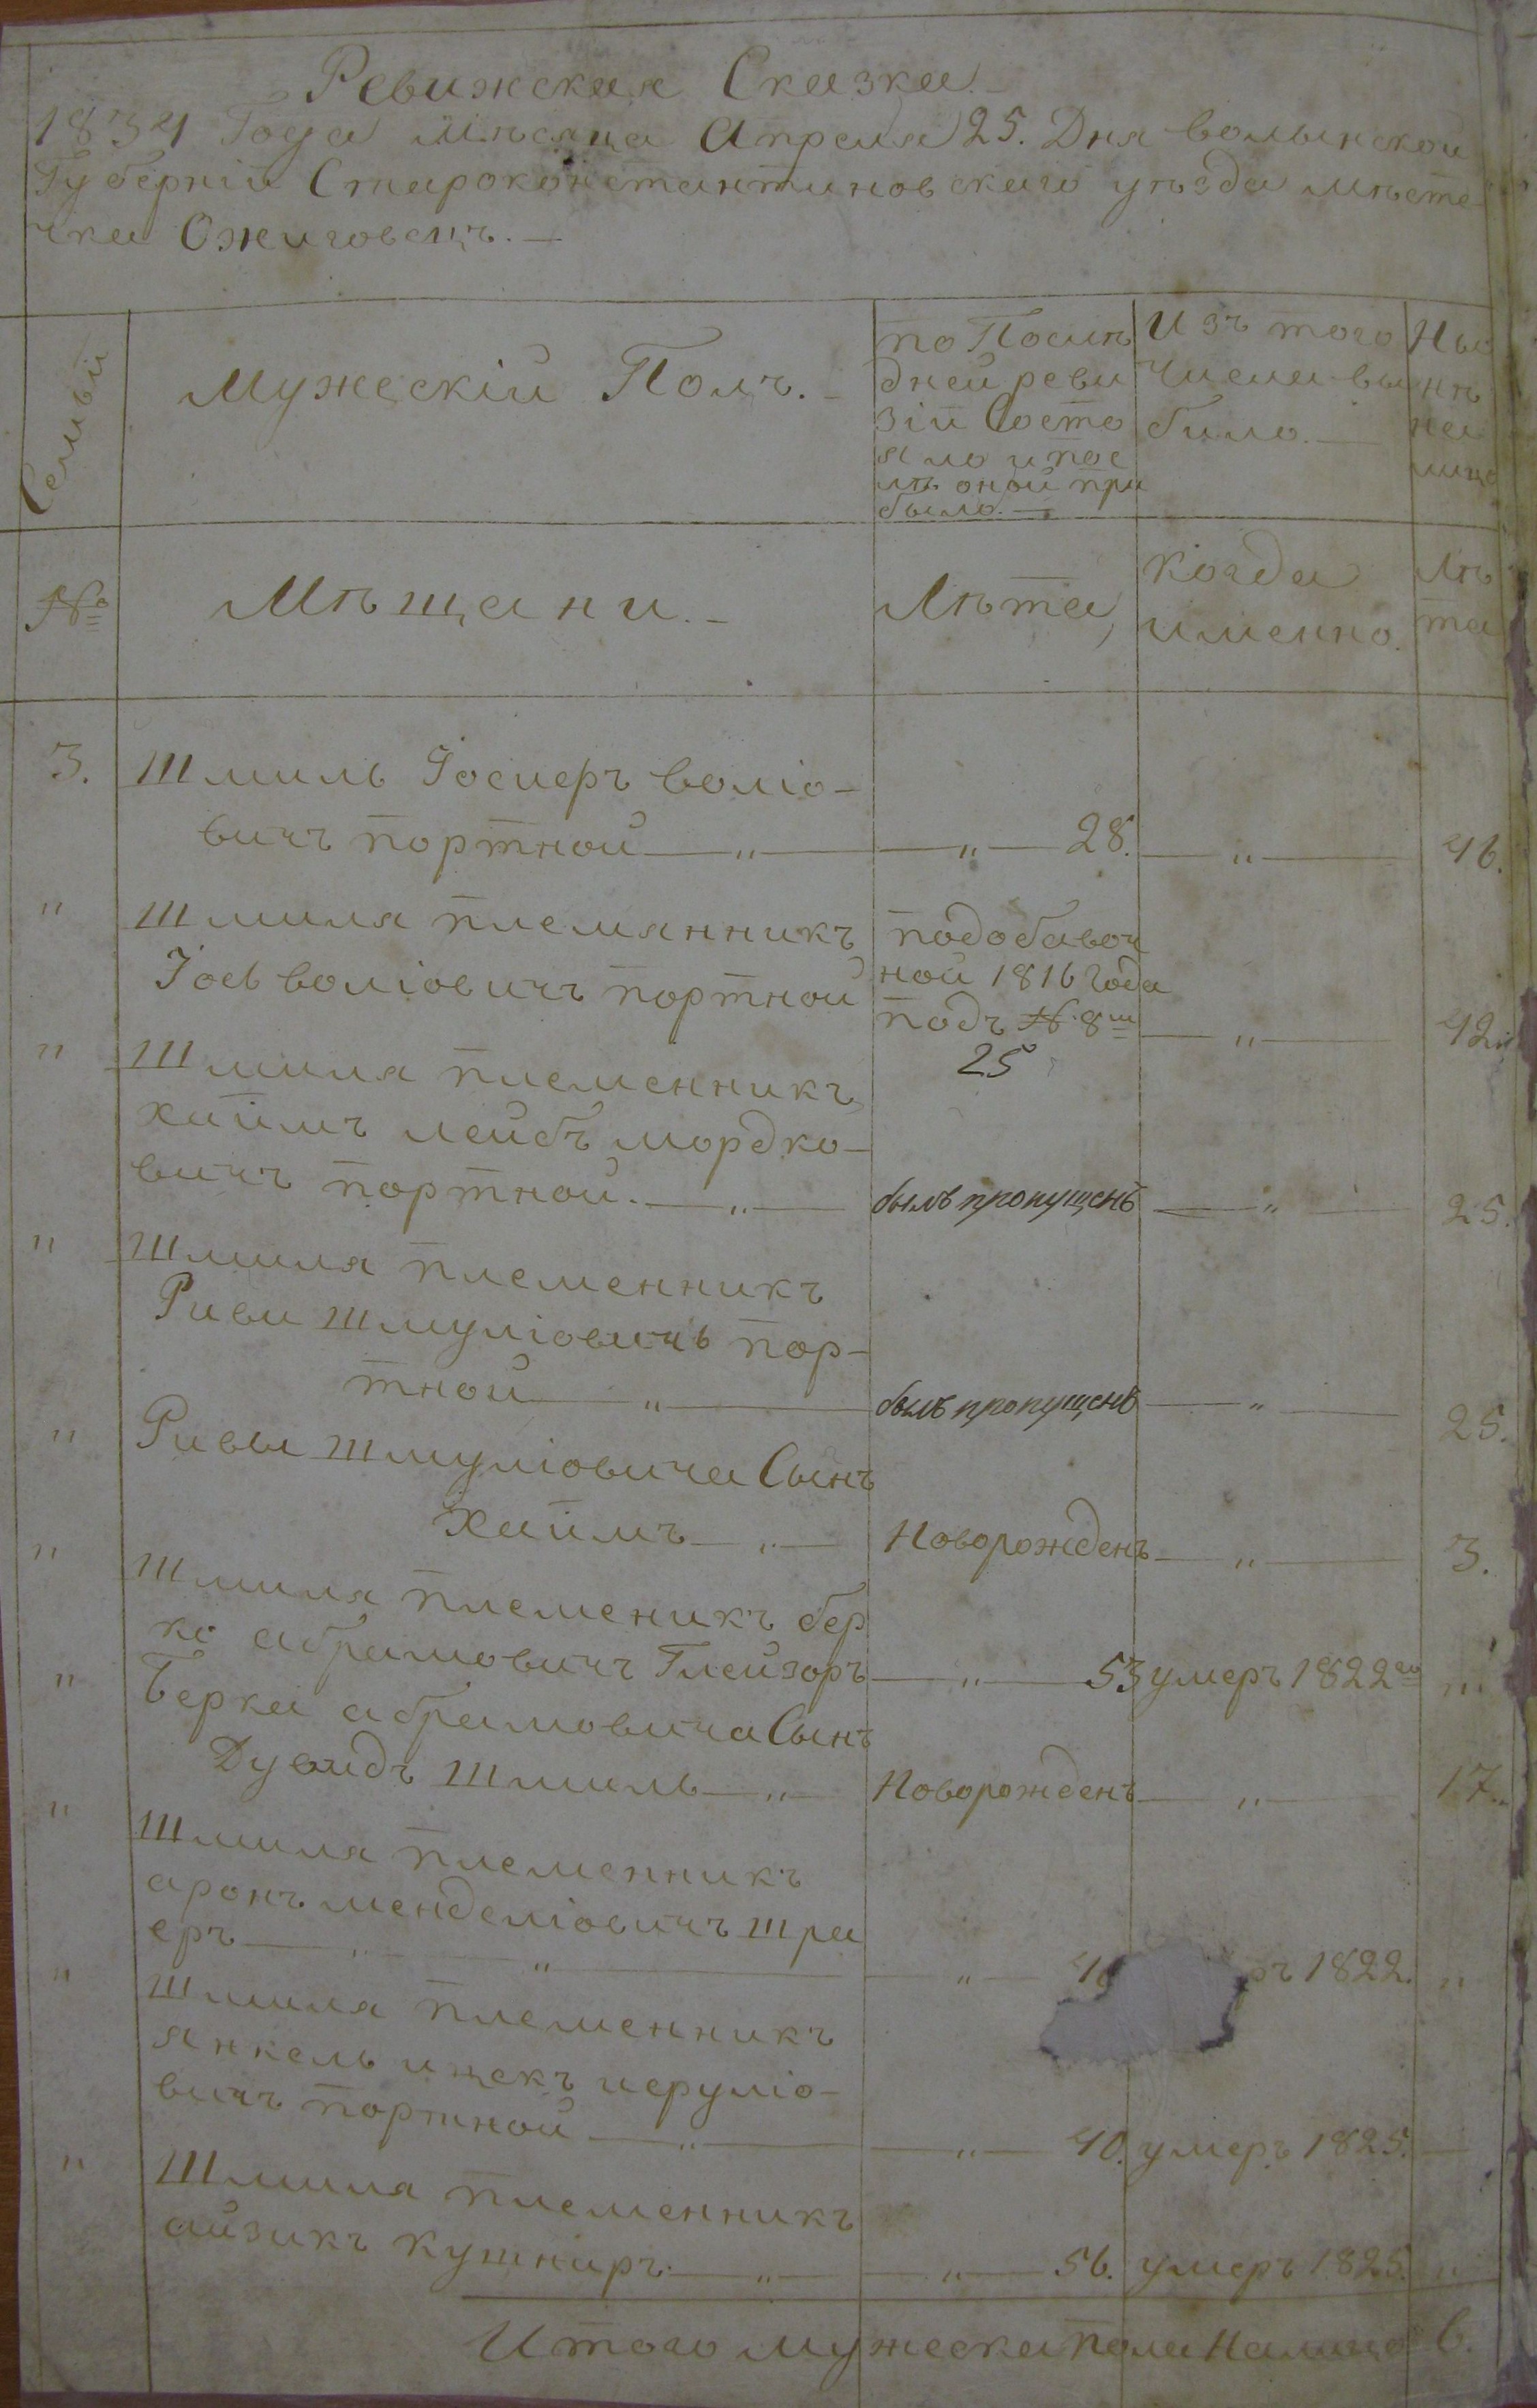 Ревижская Сказка.
1834 Года мѣсяца Апреля 25. Дня волынской
Губерніи Староконстантиновскаго уѣзда мѣсте
чка Ожиговецъ.—
Семьи
Мужескій Полъ.—
по Послѣ
дней реви
зіи Состо
яло и пос
лѣ оной при
было.—
Изъ того
числа вы
било.—
Ны
нѣ
на
лицо
№
Мѣщани.—
Лѣта,
когда
именно.
Лѣ
та
3. Шмиль Іосиеръ воліо-
вичъ портной —„— —„— 28. —„— 46.
„ Шмиля племянникъ
Іось воліовичъ портной
подобавоч
ной 1816 Года
подъ № 8ш
25 —„— 42.
„ Шмиля племенникъ
хаимъ лейбъ мордко-
вичъ портной.—„— былъ пропущенъ —„— 25.
„ Шмиля племенникъ
Риви шмуліовичъ пор-
тной —„— былъ пропущенъ —„— 25.
„ Ривы шмуліовича Сынъ
Хаимъ —„— Новорожденъ —„— 3.
„ Шмиля племеникъ бер
ко абрамовичъ Глейзоръ —„— 53 умеръ 1822го „
„ Берка абрамовича Сынъ
Дувидъ Шмиль —„— Новорожденъ —„— 17.
„ Шмиля племенникъ
аронъ менделіовичъ шра
еръ —„—„— —„— ръ 1822. „
„ Шмиля племенникъ
янкель ицекъ иеруліо-
вичъ портной —„— —„— 40. умеръ 1825. —
„ Шмиля племенникъ
айзикъ кушниръ —„— —„— 56. умеръ 1825. „
Итого мужеска пола Налицо 6.